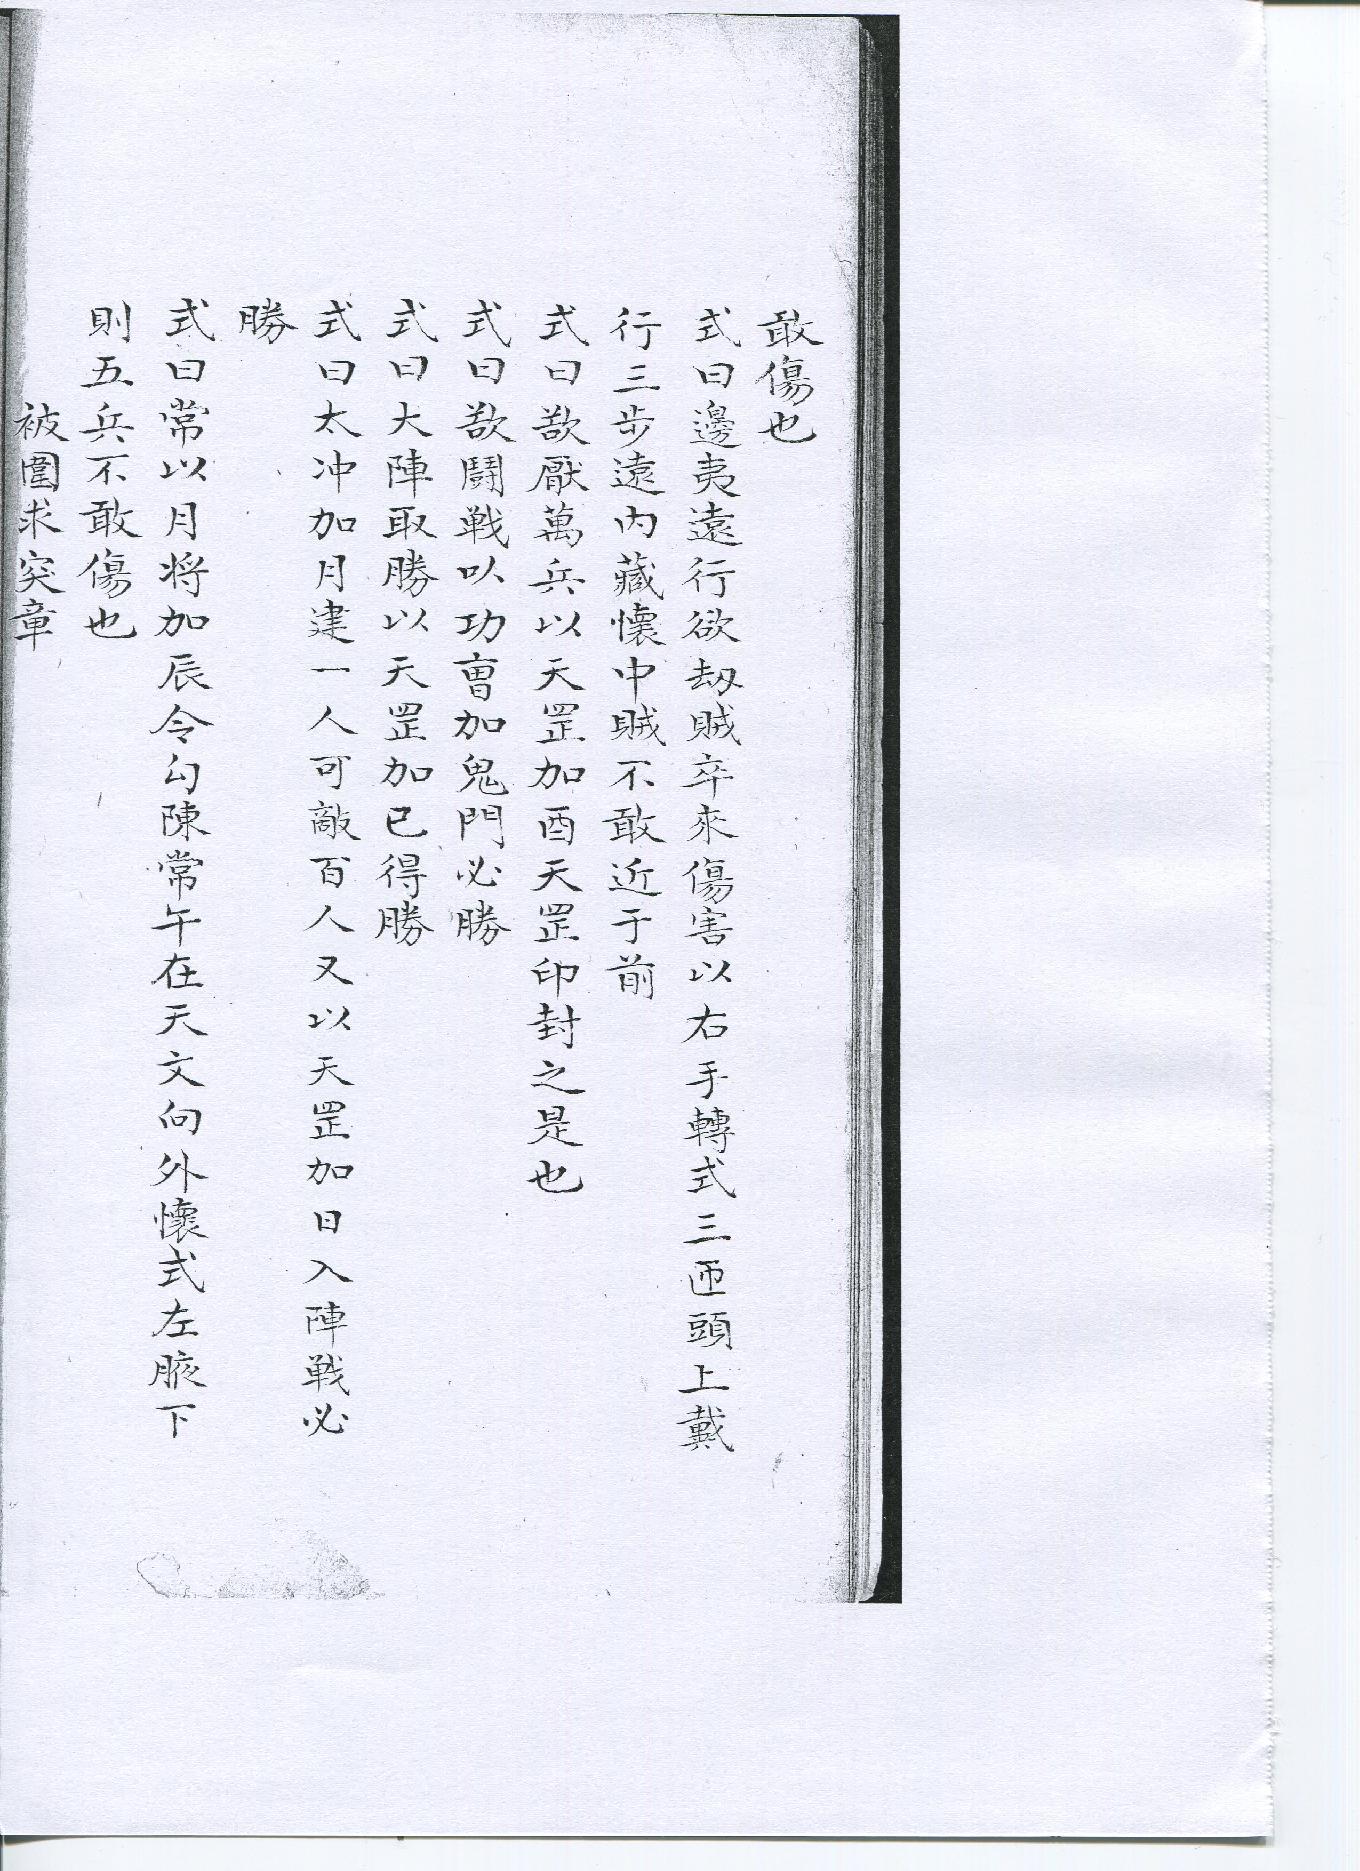 敢傷也
式曰邊夷遠行欲劫賊卒來傷害以右手轉式三匝頭上戴
行三步遠內藏懷中賊不敢近于前
式曰欲厭萬兵以天罡加酉天罡印封之是也
式曰欲鬪戦以功曺加鬼門必勝
式曰大陣取勝以天罡加巳得勝
式曰太冲加月建一人可敵百人又以天罡加日入陣戦必
勝
式曰常以月将加辰令勾陳常午在天文向外懷式左腋下
則五兵不敢傷也
被圍求突章